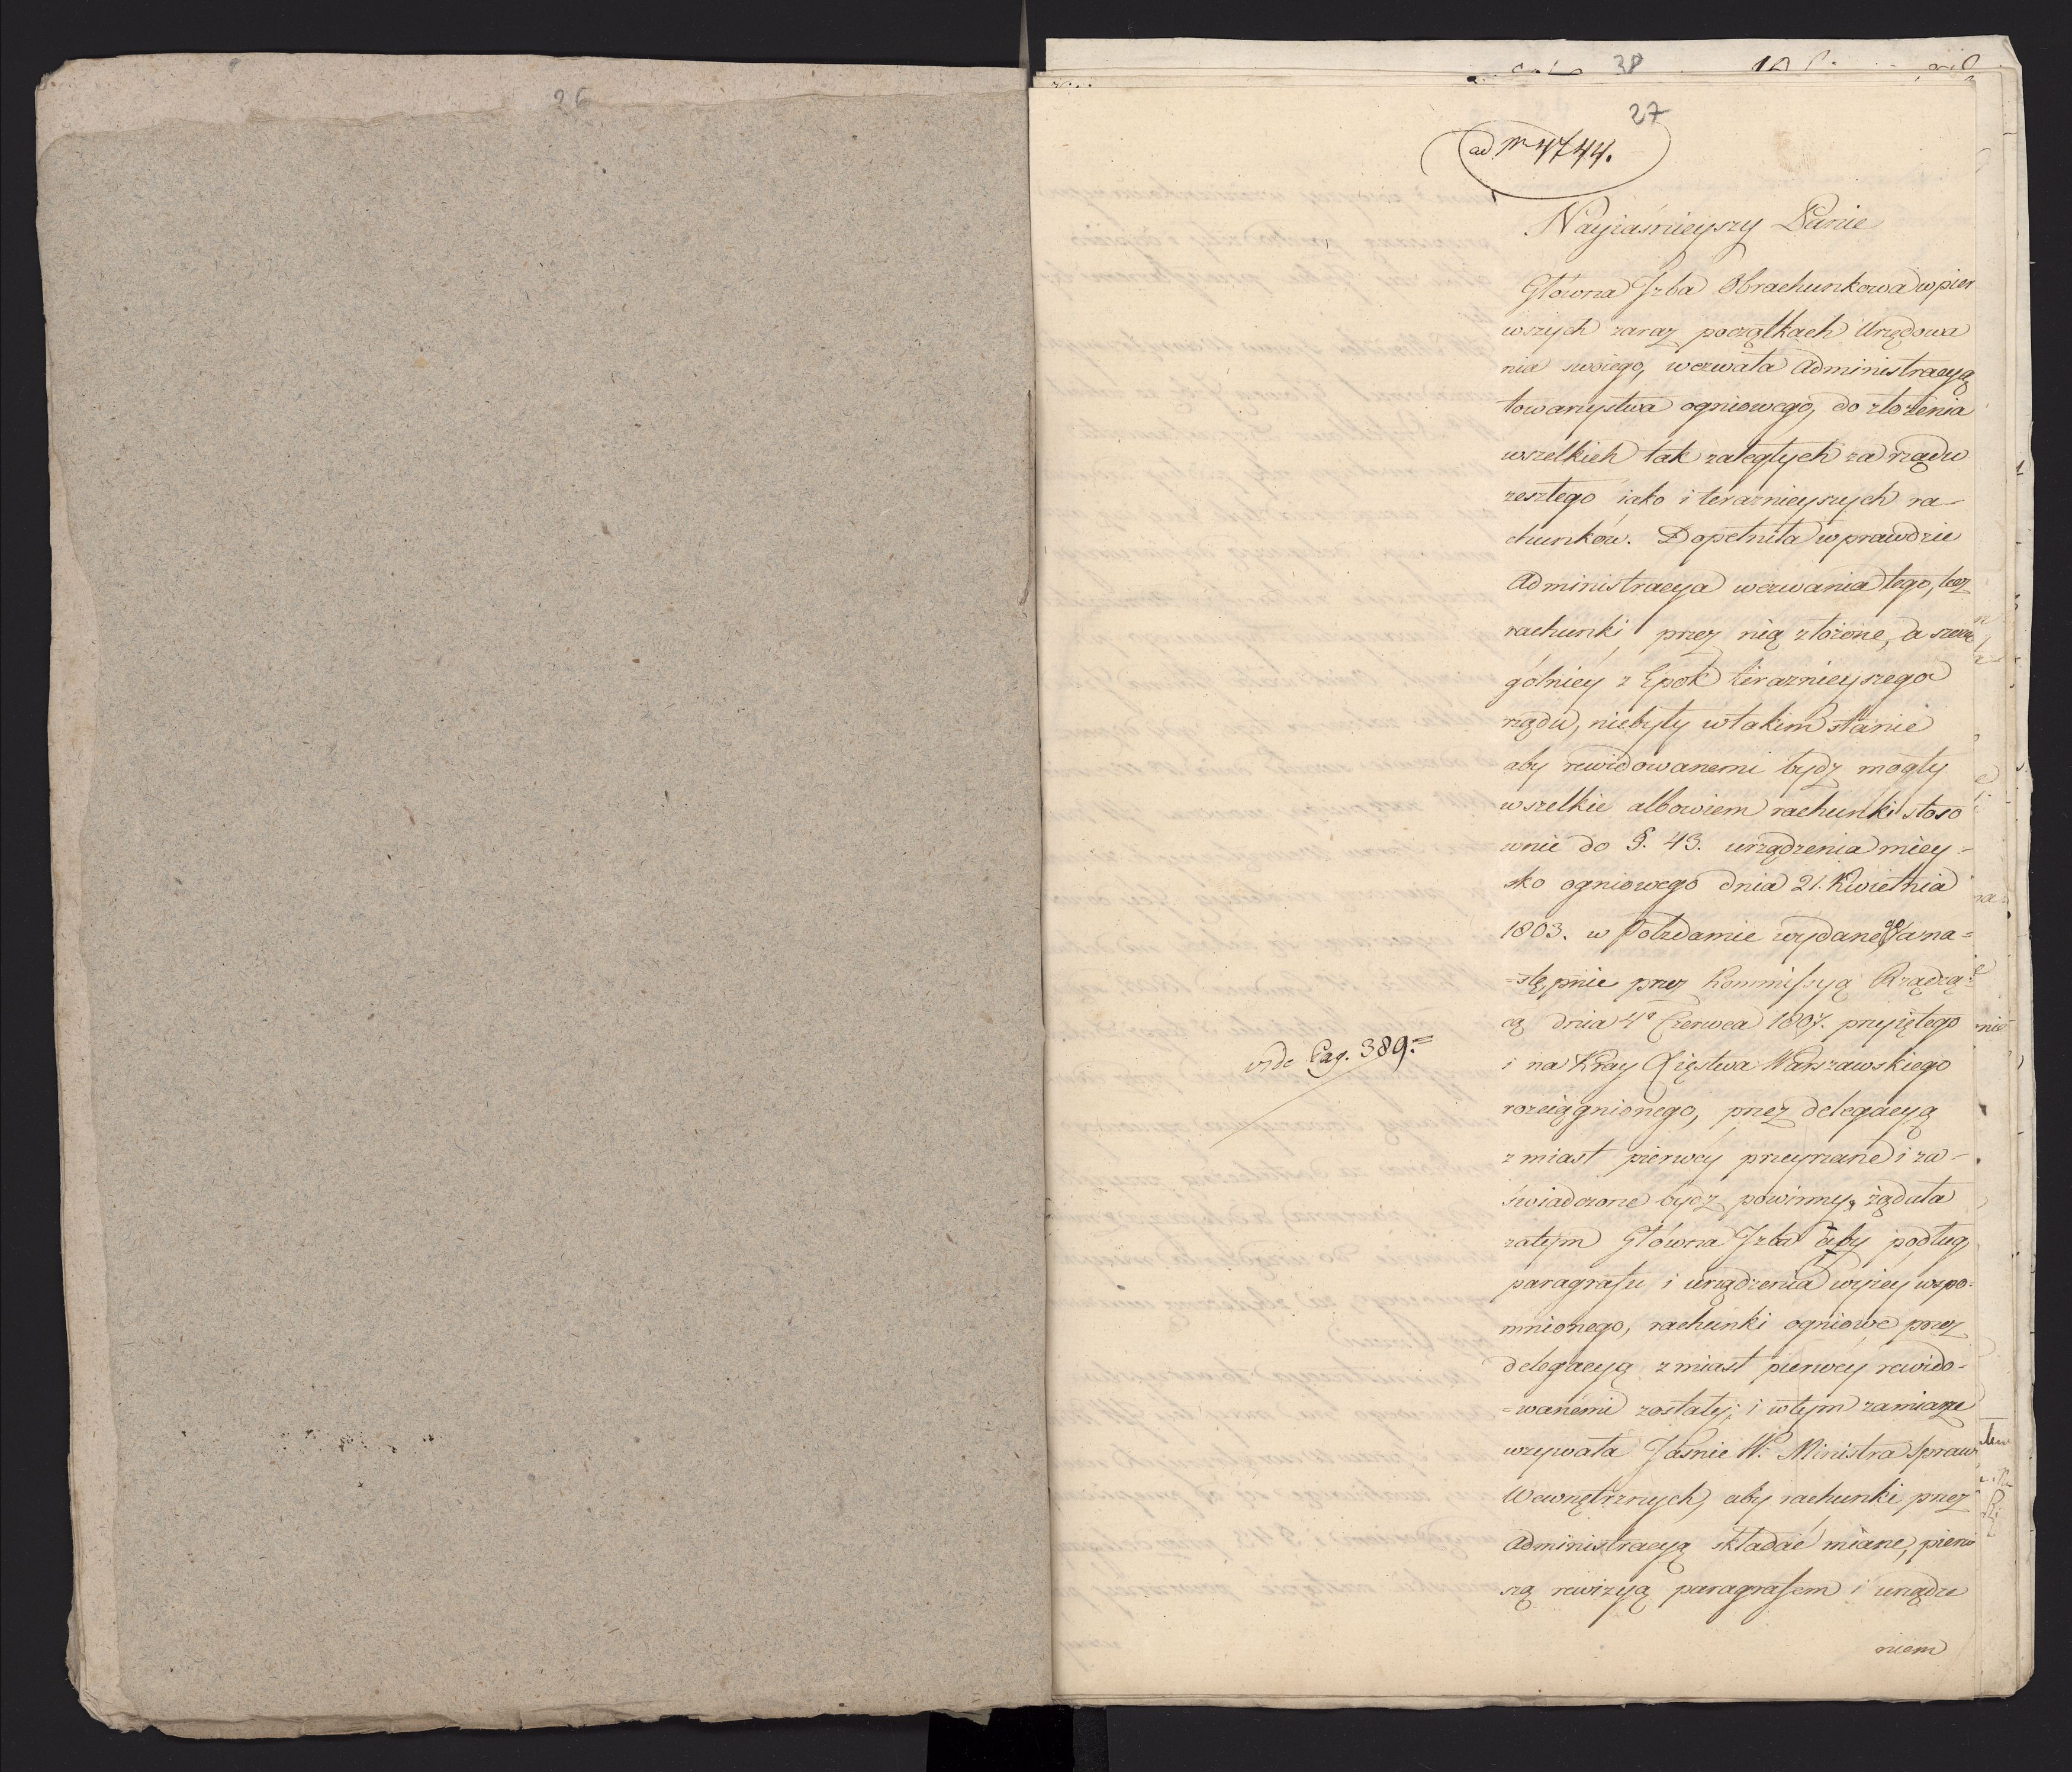 26
38
27
ad Nr 4744.
Nayiaśnieyszy Panie
Główna Jzba Obrachunkowa w pier
wszych zaraz początkach Urzędowa
nia swoiego, wezwała Administracyą
towarzystwa ogniowego, do złożenia
wszelkich tak zaległych za rządu
zeszłego iako i teraznieyszych ra-
chunków. Dopełniła wprawdzie
Administracya wezwania tego, lecz
rachunki przez nią złożone, a szcze
gólniéy z Epok teraznieyszego
rządu, niebyły w takim stanie
aby rewidowanemi bydz mogły
wszelkie albowiem rachunki stoso
wnie do §. 43. urządzenia miey-
sko ogniowego dnia 21. Kwietnia
1803. w Potzdamie wydanego a na=
=stępnie przez Kommissyą Rządzą=
cą dnia 4o Czerwca 1807. przyiętego
i na Kray Xięstwa Warszawskiego
rozciągnionego, przez delegacyą
z miast pierwéy przeyrzane i za-
świadczone bydz powinny, żądała
zatym Główna Jzba aby podług
paragrafu i urządzenia wyżey wspo=
mnionego, rachunki ogniowe przez
delegacyą z miast pierwéy rewido=
=wanemi zostały; i w tym zamiarze
wzywała Jaśnie W. Ministra Spraw
Wewnętrznych, aby rachunki przez
Administracyą składać miane, pierw
szą rewizyą paragrafem i urządze
niem
vide Pag. 389.=